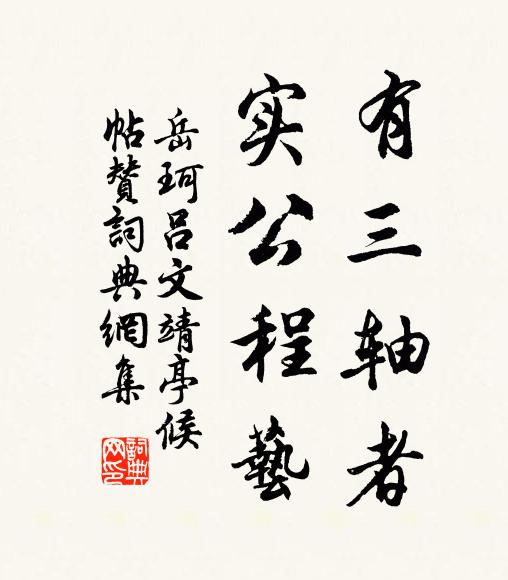 有三轴者
实公程藝
岳珂吕文靖亭候
帖贊詞典網集
詞典网印